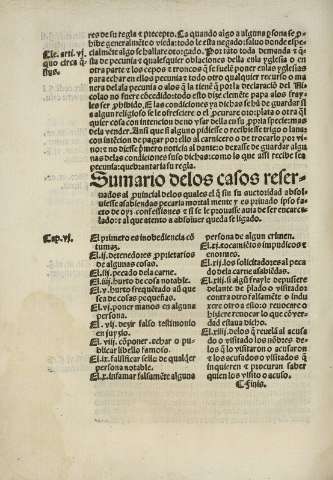 res de su regla τ precepto. Ca quando algo a alguna psona se p
hibe generalmẽte o vieda: todo le esta negado: saluo donde espe
cialmẽte algo se hallare otorgado. Por tãto toda demanda τ q̃
sta de pecunia τ qualesquier oblaciones dela enla yglesia o en
otra parte τ los cepos τ troncos q̃ se suelẽ poner enlas yglesias
para echar en ellos pecunia τ todo otro qualquier recurso o ma
nera dela pecunia o alos q̃ la tienẽ por la declaració del
Nicolao no fuere cõcedido: todo esto dize clemẽte papa alos fray
les ser phibido. E las condiciones ya dichas se hã de guardar si
a algun religioso se le ofreciere o el pcurare oro: plata: o otra q̃l
quier cosa con intencion de no vsar della en su ppia specie: mas
dela vender. Ansi que si alguno pidiesse o recibiesse trigo o lana:
con intẽcion de pagar por ello al carnicero o de trocarlo por vi
no: τ no diesse primero noticia al dante o dexasse de guardar algu
nas delas condiciones suso dichas: como lo que assi recibe sea
pecunia: quebrantaria su regla.
Cle. arti. vj.
quo circa q̃
stus.
Sumario delos casos reser
uados al puincial delos quales el q̃ sin su auctoridad absol
uiesse asabiendas pecaria mortal mente y es priuado ipso fa
cto de oyr confessiones τ si se le prouasse aura de ser encarce
lado: τ al que atento a absoluer queda se ligado.
Cap. vj.
El primero es inobediencia cõ
tumaz.
El. ij. detenedores ppietarios
de algunas cosas.
El. iij. pecado dela carne.
El. iiij. hurto de cosa notable.
El. v. hurto frequẽtado aũ que
sea de cosas pequeñas.
El. vj. poner manos en alguna
persona.
El. vij. dezir falso testimonio
en juyzio.
El. viij. cõponer. echar o pu
blicar libello famoso.
El. ix. falsificar sello de qualq̃er
persona notable.
El. x. infamar falsamẽte alguna
persona de algun crimen.
El. xj. tocamiẽtos impudicos τ
enormes.
El. xij. los solicitadores al peca
do dela carne asabiẽdas.
El. xiij. si algũ frayle depusiere
delante de plado o visitador
contra otro falsamẽte o indu
xere otros a ello: o reuocare o
hiziere reuocar lo que cõ ver
dad estaua dicho.
El. xiiij. delos q̃ reuelã al acusa
do o visitado los nõbres de
los q̃ lo visitaron o acusaron
τ los acusados o visitados q̃
inquieren τ procuran saber
quien los visito o acuso.
Finis.